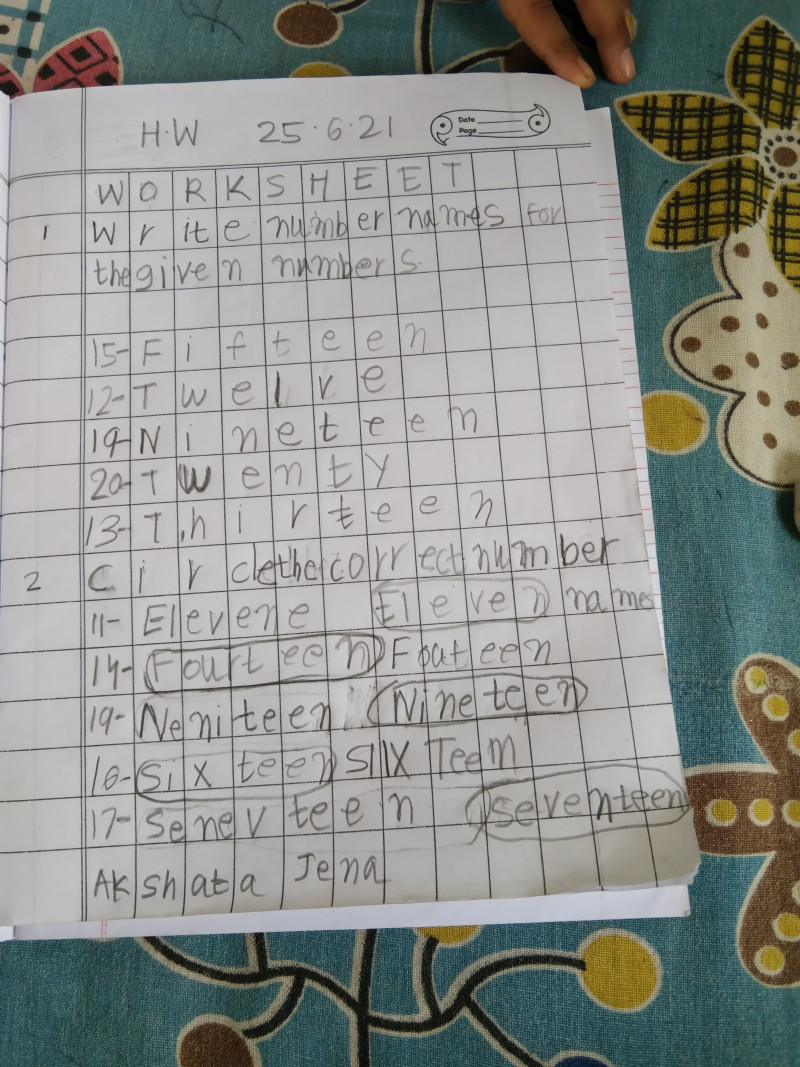 H.W 25.6.21
Date
Page
WORKSHEET
1 Write number names for
the given numbers.
15- Fifteen
12- Twelve
19- Nineteen
20- Twenty
13- Thirteen
2 Circle the correct number
names
11- Elevene Eleven
14- Fourteen Foateen
19- Neniteen Nineteen
16- Sixteen SIIXTeem
17- Senevteen Seventeen
Akshata Jena